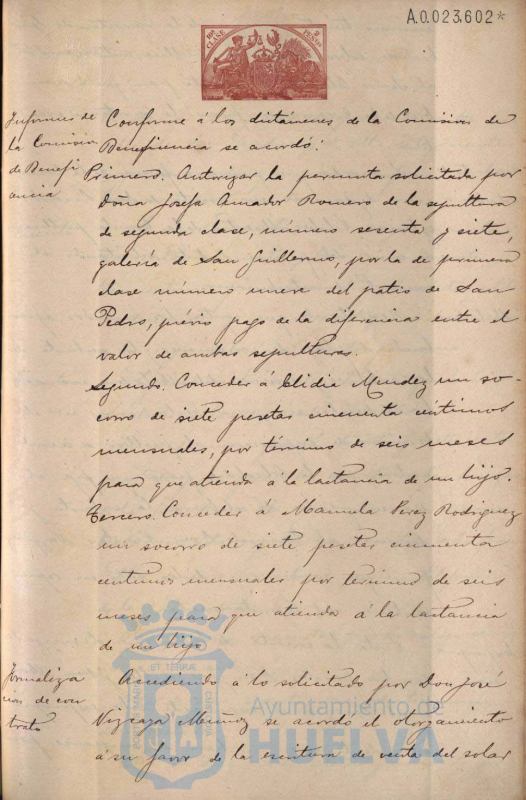 A.0.023.602*
10ª CLASE 2 PESETAS
Informes de
la Comision
de Benefi
cencia
Conforme á los dictámenes de la Comision de
Beneficencia se acordó:
Primero. Autorizar la permuta solicitada por
doña Josefa Amador Romero de la sepultura
de segunda clase, número sesenta y siete,
galería de San Guillermo, por la de primera
clase número nueve del patio de San
Pedro, prévio pago de la diferencia entre el
valor de ambas sepulturas.
Segundo. Conceder á Elidia Mendez un so-
corro de siete pesetas cincuenta céntimos
mensuales, por término de seis meses
para que atienda á la lactancia de un hijo.
Tercero. Conceder á Manuela Perez Rodriguez
un socorro de siete pesetas cincuenta
centimos mensuales por termino de seis
meses para que atienda á la lactancia
de un hijo
Formaliza
cion de con
trato
Accediendo á lo solicitado por Don José
Vizcaya Muñoz se acordó el otorgamiento
á su favor de la escritura de venta del solar
Ayuntamiento de
HUELVA